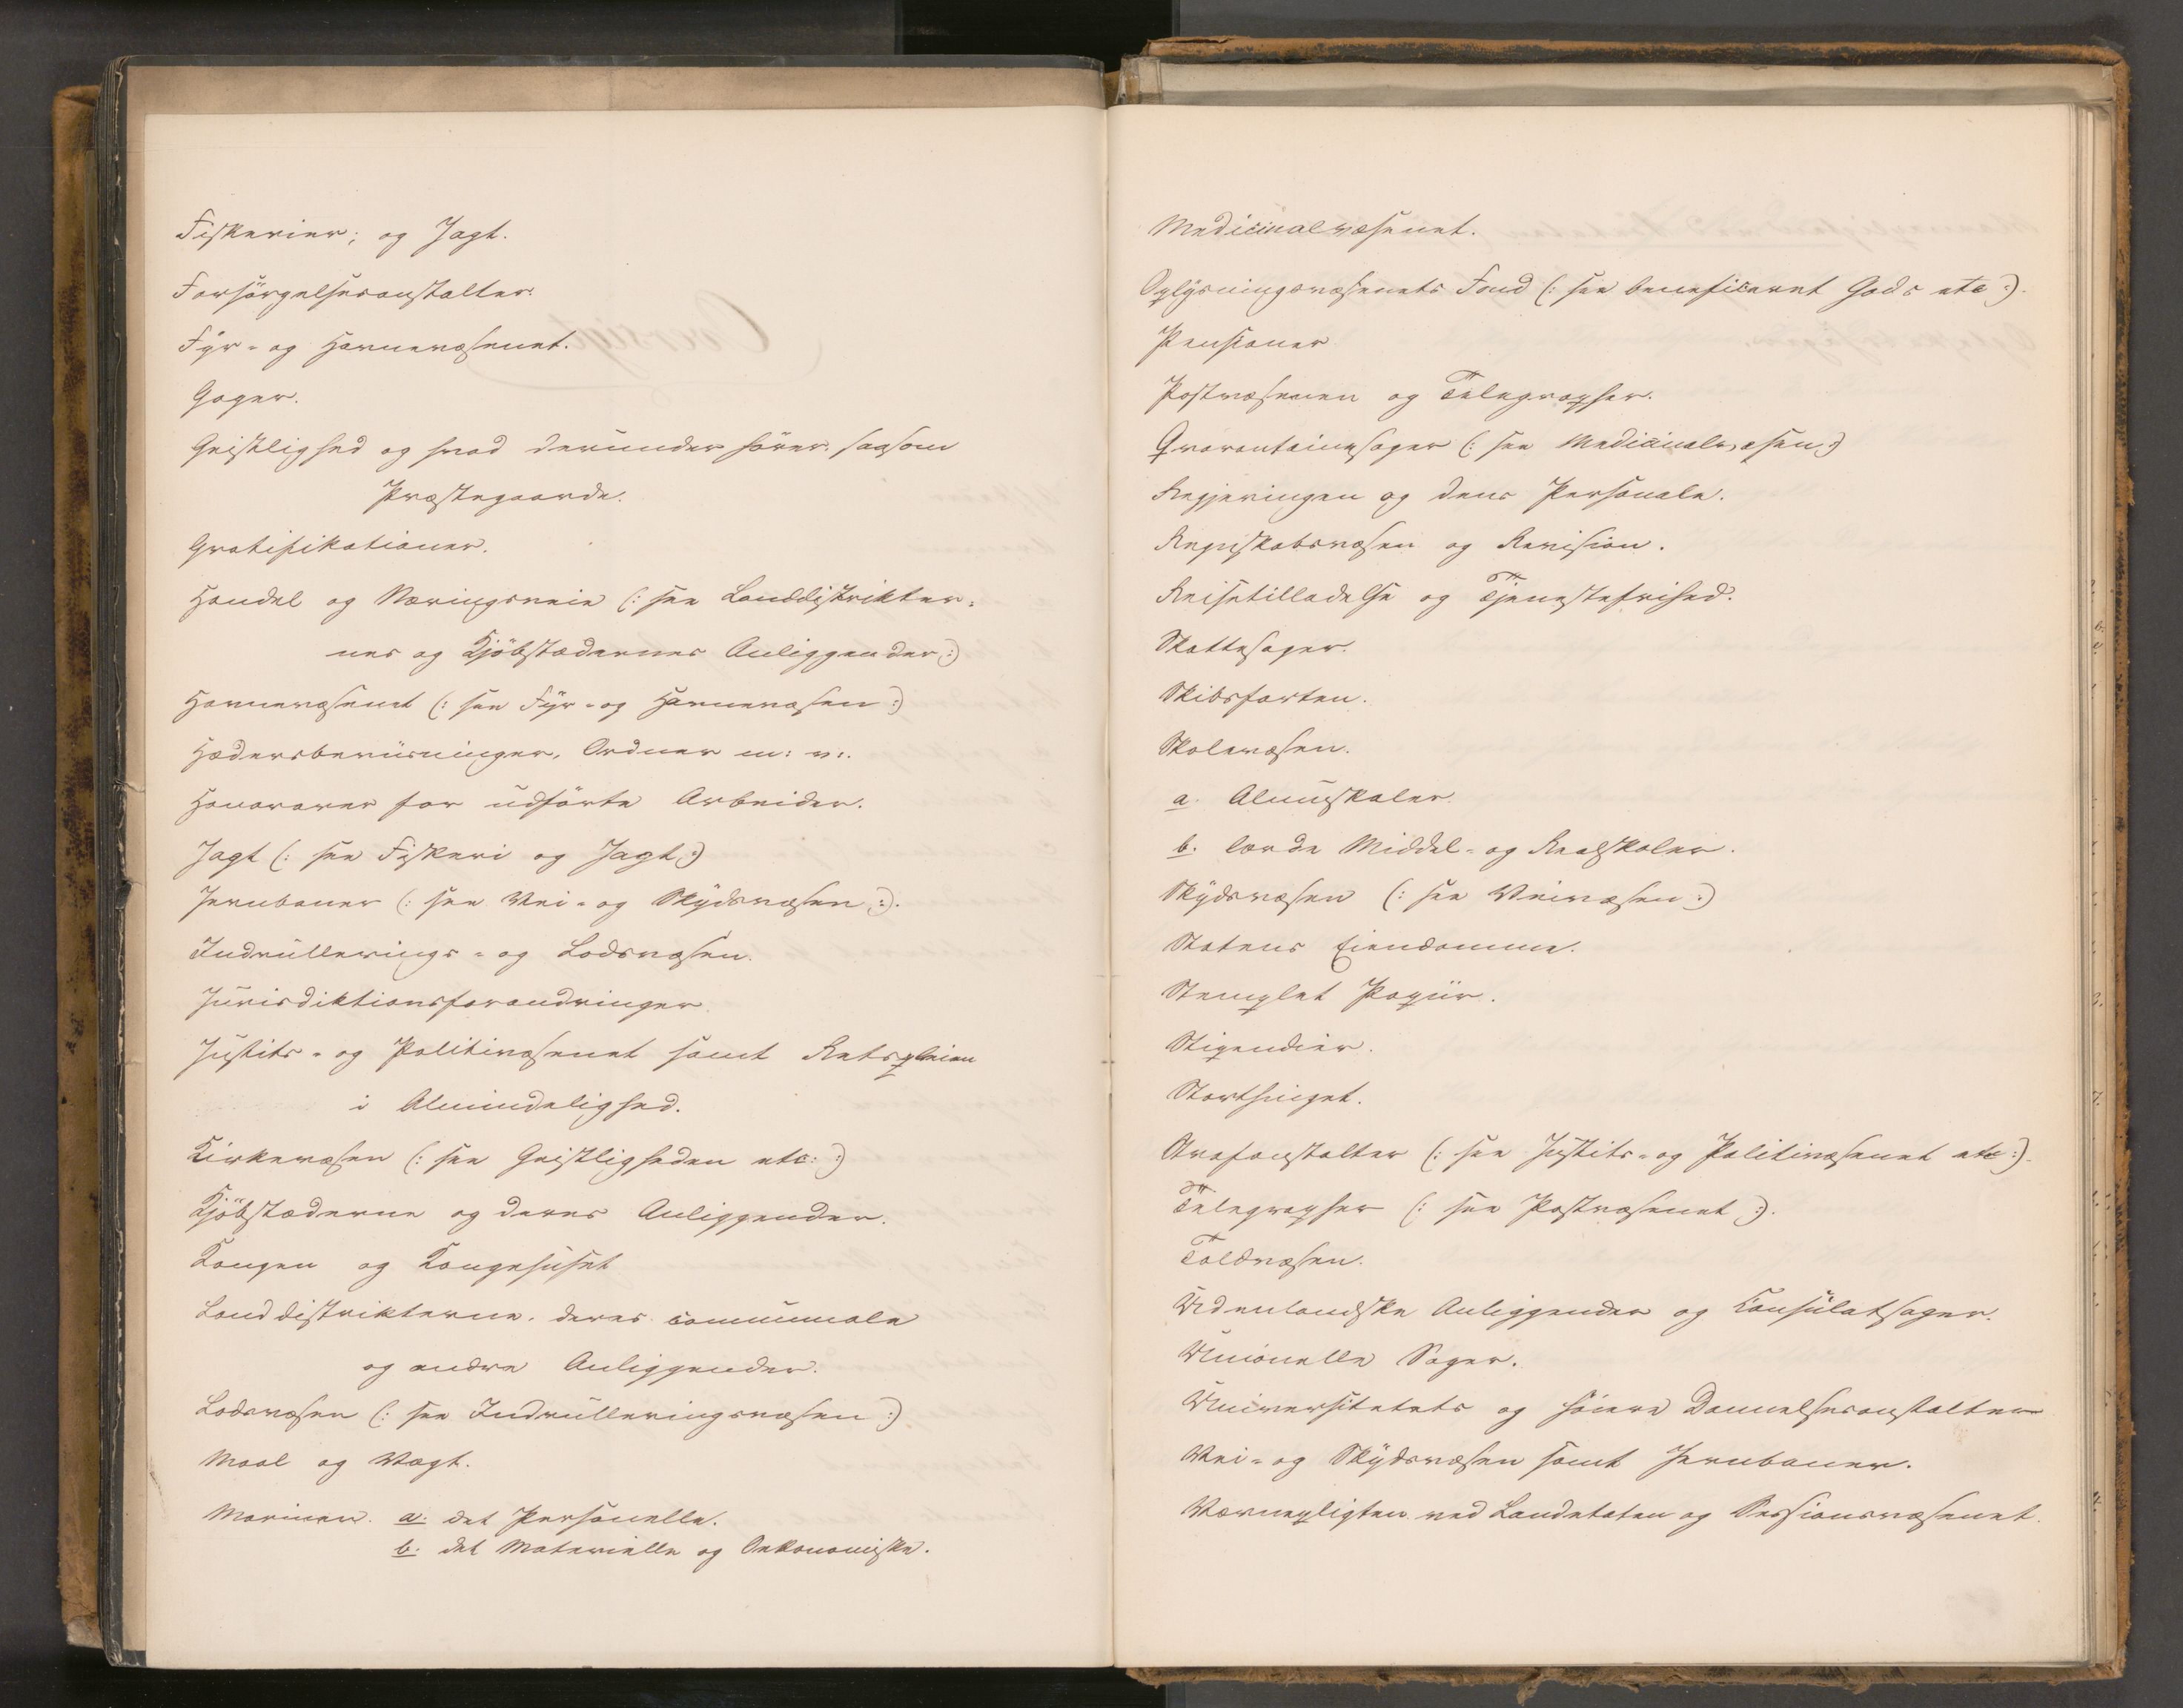 Fiskerier; og Jagt.
Forsörgelsesanstalter.
Fyr- og Havnevæsenet.
Gager.
Geistlighed og hvad derunder hörer, saasom
Præstegaarde.
Gratifikationer.
Handel og Næringsveie (: see Landdistrikter-
nes og Kjöbstædernes Anliggender :)
Havnevæsenet (: see Fyr- og Havnevæsen :)
Hædersbeviisninger, Ordner m: v:.
Honorarer for udförte Arbeider.
Jagt (: see Fiskeri og Jagt :)
Jernbaner (: see Vei- og Skydsvæsen :).
Indrullerings- og Lodsvæsen.
Jurisdiktionsforandringer.
Justits- og Politivæsenet samt Retspleien
i Almindelighed.
Kirkevæsen (: see Geistligheden etc: :)
Kjöbstæderne og deres Anliggender.
Kongen og Kongehuset
Landdistrikterne, deres communale
og andre Anliggender.
Lodsvæsen (: see Indrulleringsvæsen :)
Maal og Vægt.
Marinen. a. det Personelle.
b. det Materielle og Oekonomiske.
Medicinalvæsenet.
Oplysningsvæsenets Fond (: see beneficeret Gods etc :).
Pensioner
Postvæsenen og Telegrapher.
Qvarantainesager (: see Medicinalvæsen :)
Regjeringen og dens Personale.
Regnskabsvæsen og Revision.
Reisetilladelse og Tjenestefrihed.
Skattesager.
Skibsfarten.
Skolevæsen.
a. Almuskoler.
b. lærde Middel- og Realskoler.
Skydsvæsen (: see Veivæsen :)
Statens Eiendomme.
Stemplet Papiir.
Stipendier.
Storthinget.
Strafanstalter (: see Justits- og Politivæsenet etc :).
Telegrapher (: see Postvæsenet :).
Toldvæsen.
Udenlandske Anliggender og Consulatsager.
Unionelle Sager.
Universitetets og höiere Dannelsesanstalter
Vei- og Skydsvæsen samt Jernbaner.
Værnepligten ved Landetaten og Sessionsvæsenet.